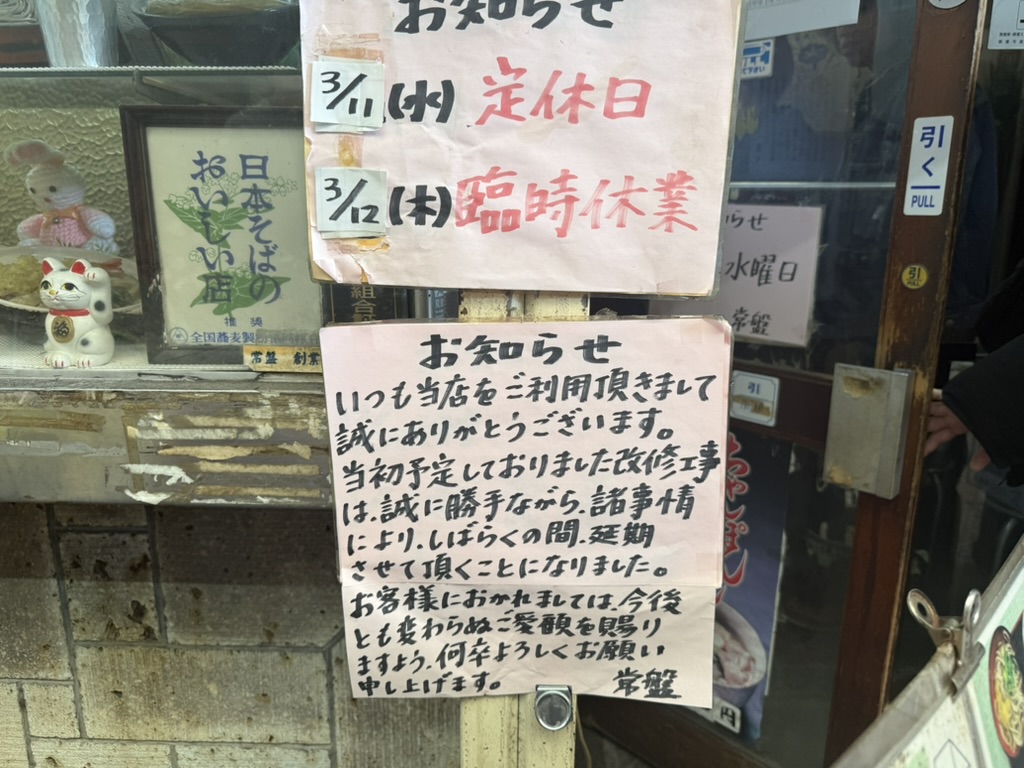 お知らせ
3/11(水) 定休日
3/12(木) 臨時休業
お知らせ
いつも当店をご利用頂きまして
誠にありがとうございます。
当初予定しておりました改修工事
は、誠に勝手ながら、諸事情
により、しばらくの間、延期
させて頂くことになりました。
お客様におかれましては、今後
とも変わらぬご愛顧を賜り
ますよう、何卒よろしくお願い
申し上げます。 常盤
日本そばの
おいしい店
推奨
全国蕎麦製
常盤 創業
組合
福
らせ
水曜日
常盤
引く
PULL
引
PULL
引
ちゃんぽん
円